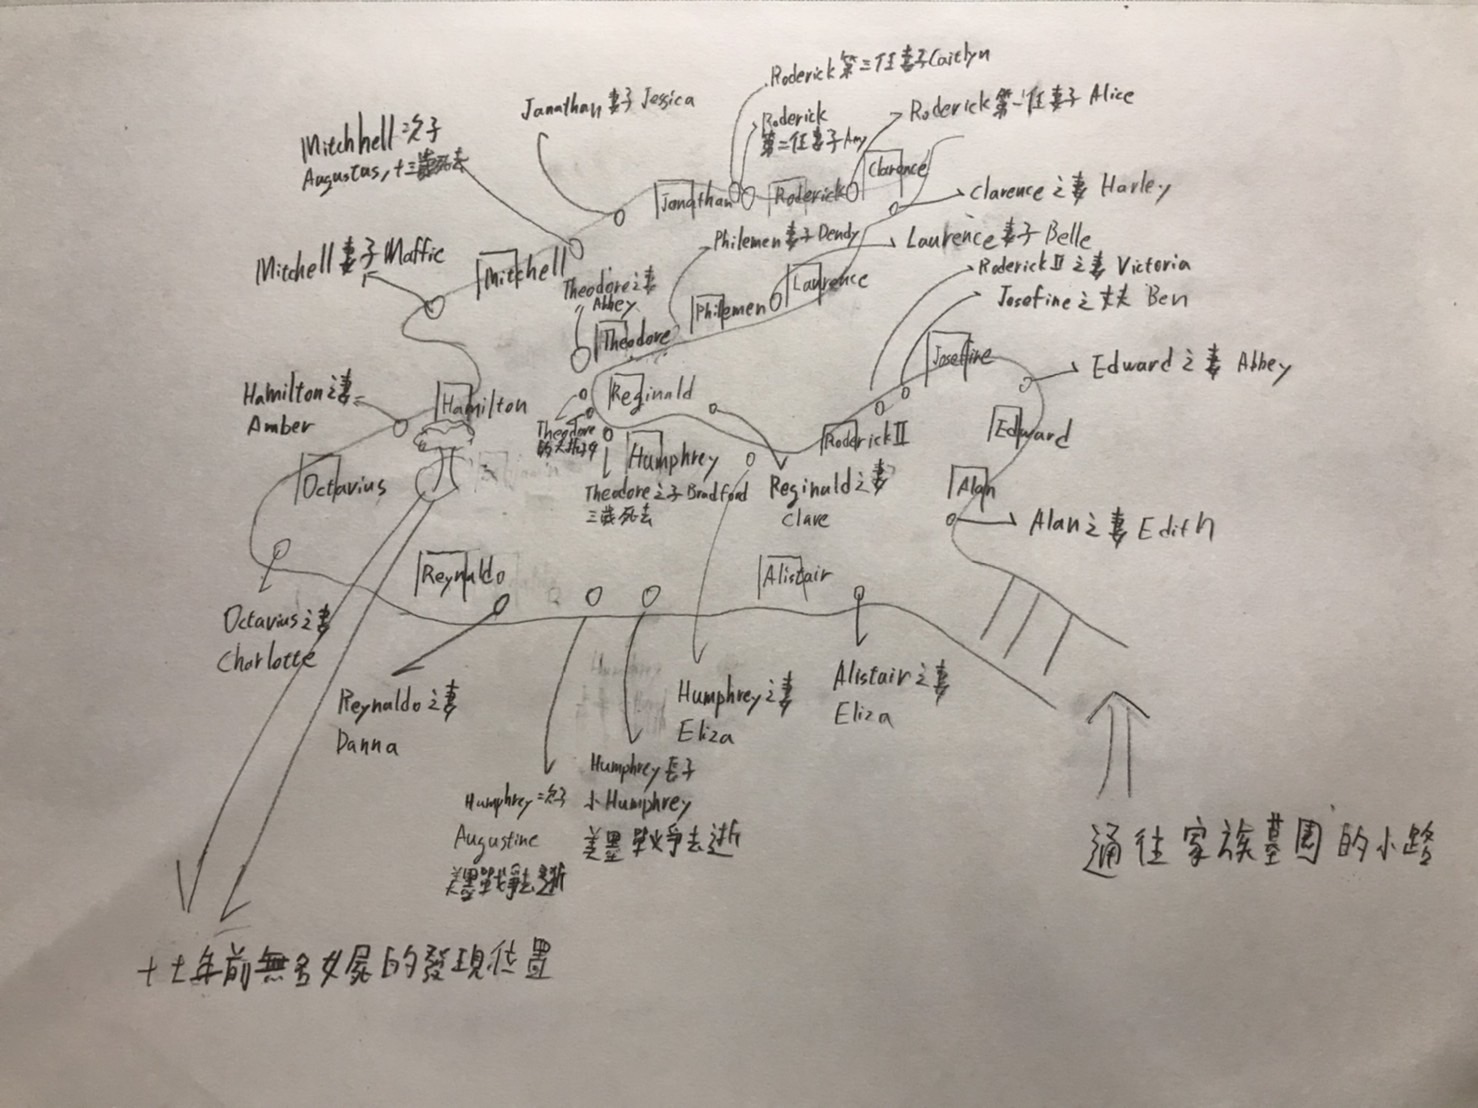 Roderick第三任妻子Caitlyn
Janathan妻子Jessica
Roderick
第二任妻子Amy
Roderick第一任妻子 Alice
Mitchhell次子
Augustus,十三歲死去
Clarence
Jonathan
Roderick
Clarence之妻 Harley
Mitchell妻子Maffie
Mitchell
Philemen妻子Dendy
Laurence妻子 Belle
Theodore之妻
Abbey
Laurence
RoderickⅡ之妻 Victoria
Philemen
Josefine之丈夫 Ben
Theodore
Josefine
Edward之妻 Abbey
Hamilton之妻
Amber
Hamilton
Reginald
Theodore
Edward
RoderickⅡ
Humphrey
Octavius
Theodore之子Bradford
三歲死去
Reginald之妻
Clave
Alan
Alan之妻 Edith
Reynaldo
Alistair
Octavius之妻
Charlotte
Reynaldo之妻
Danna
Humphrey之妻
Eliza
Alistair之妻
Eliza
Humphrey長子
小Humphrey
美墨戰爭去逝
Humphrey二次子
Augustine
美墨戰爭去逝
通往家族墓園的小路
十七年前無名女屍的發現位置